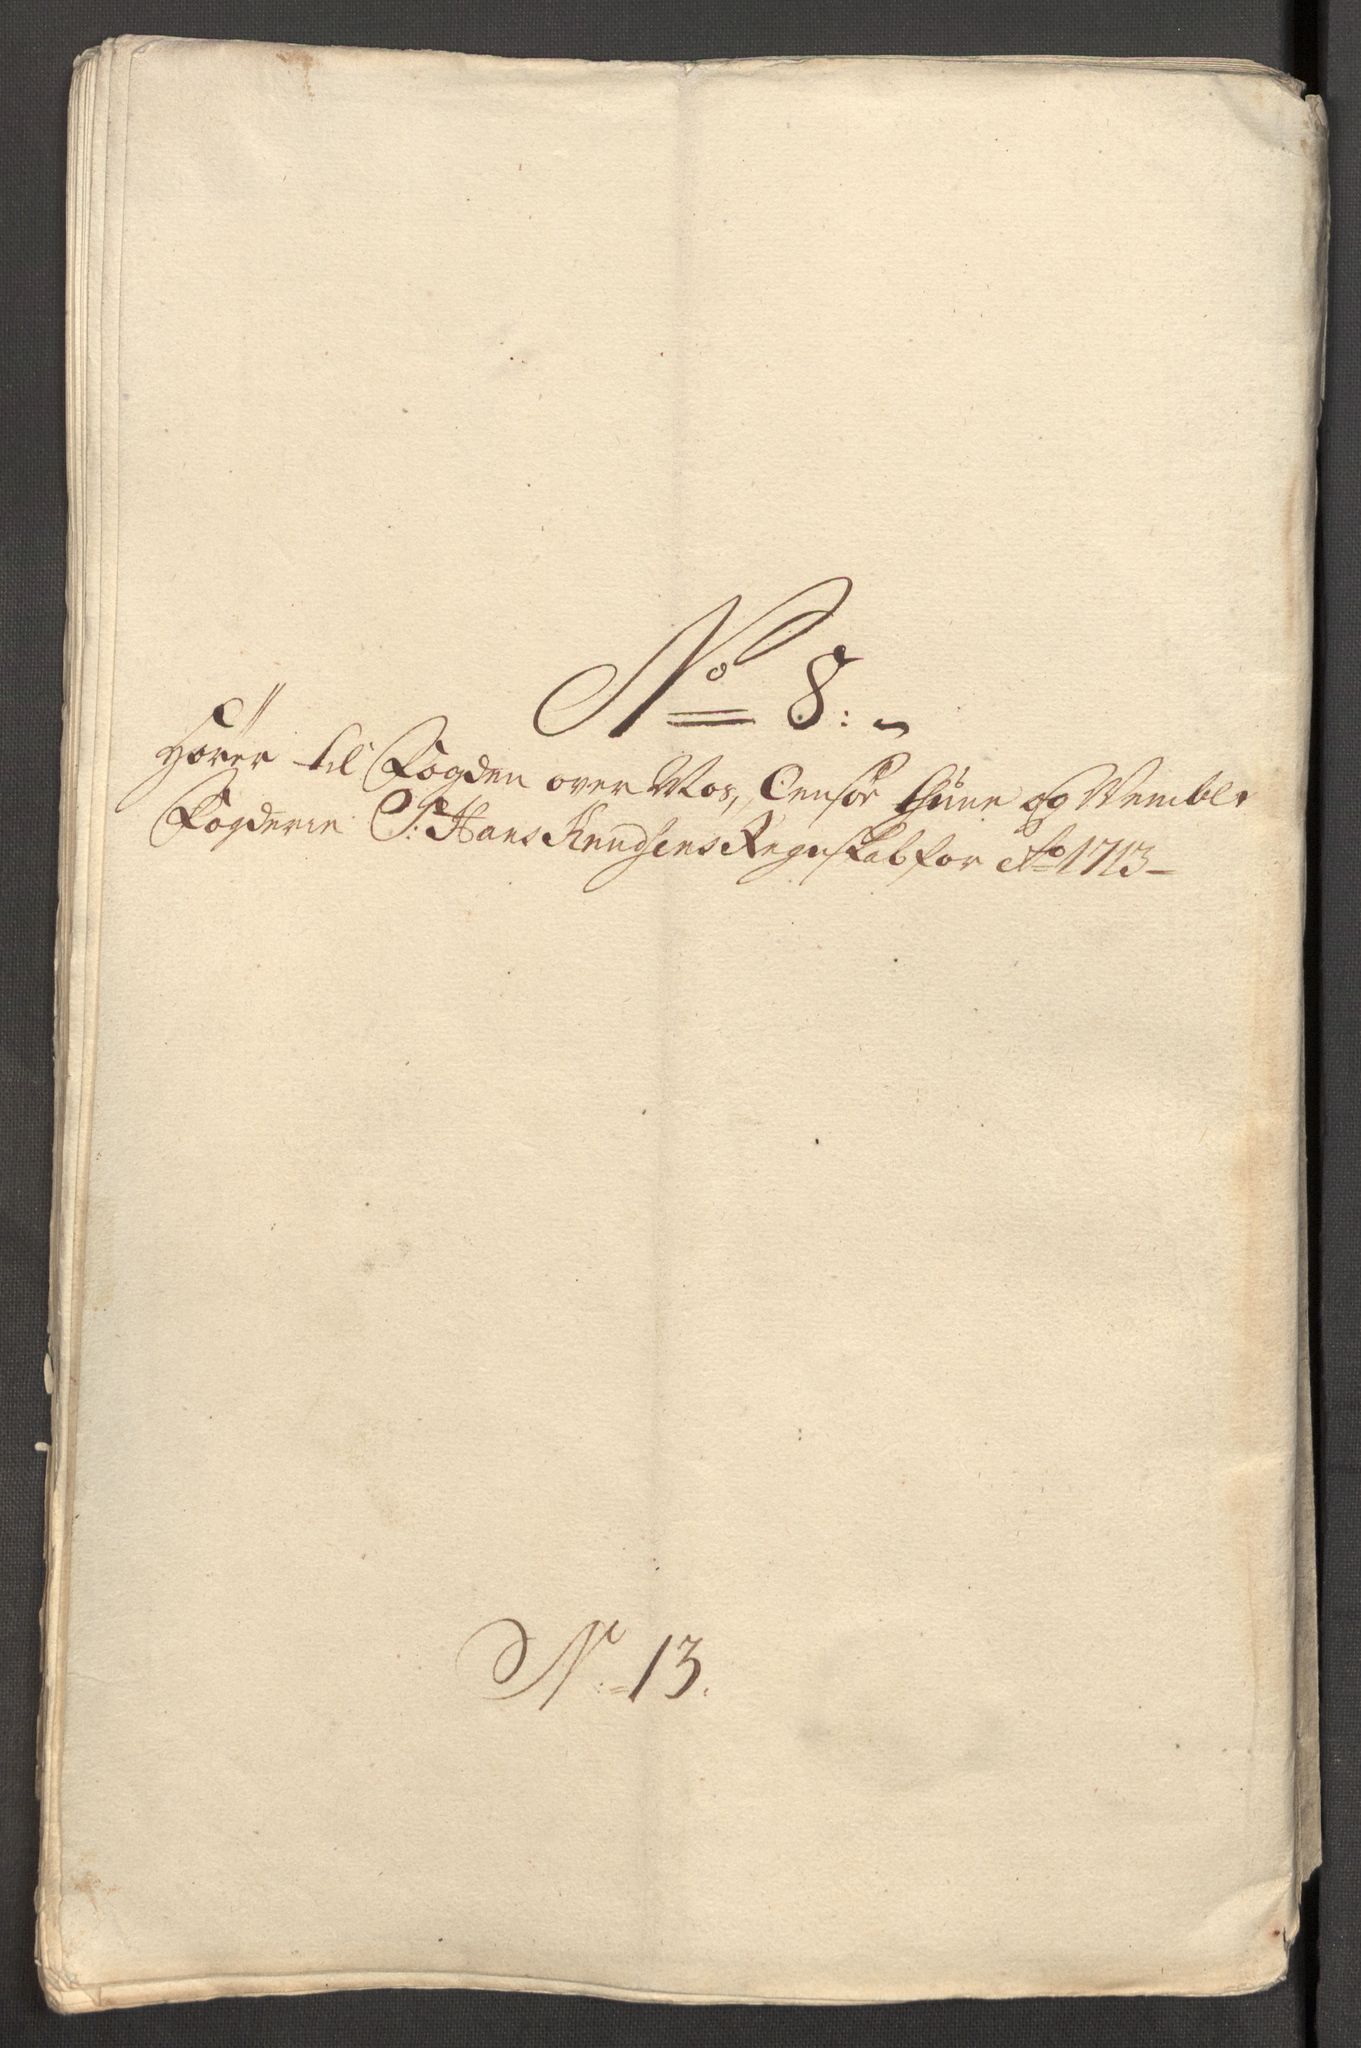 No 8:
Hører til Fogden over Mos, Onsøe thune og Wembler
Fogderie S: Hans Knudsens Regnskab for Ao 1713
No 13.